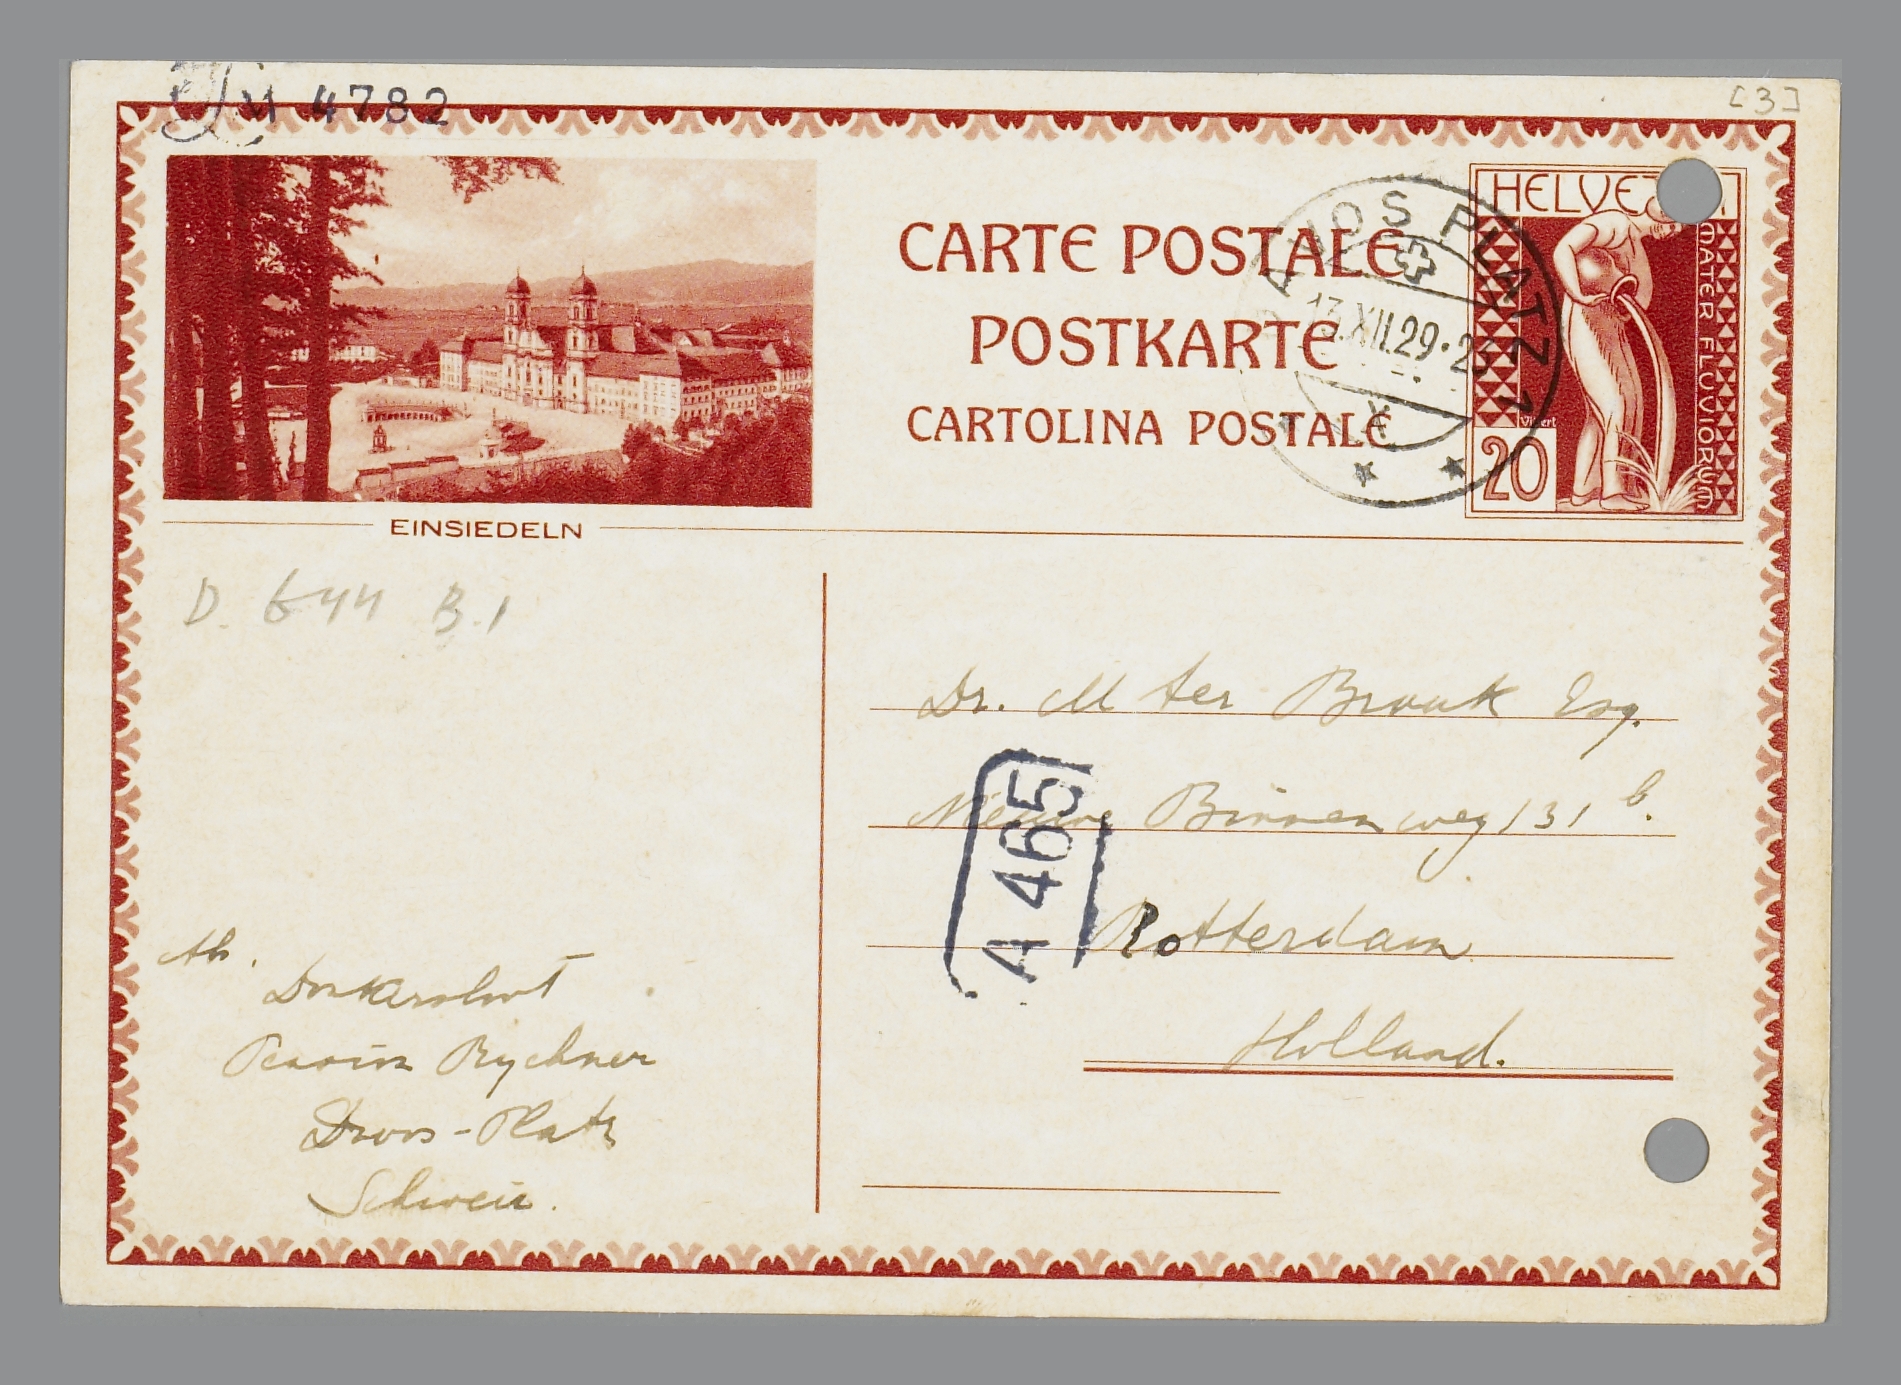 M 4782
[3]
HELVETIA
MATER FLUVIORUM
20
CARTE POSTALE
POSTKARTE
CARTOLINA POSTALE
DAVOS PLATZ 1
13.XII.29·23
EINSIEDELN
D. 644 B.1
Dr. M ter Braak Esq.
Nieuwe Binnenweg 131 b.
Rotterdam
Holland.
A 465
Ab.
Donkersloot
Pension Rychner
Davos-Platz
Schweiz.